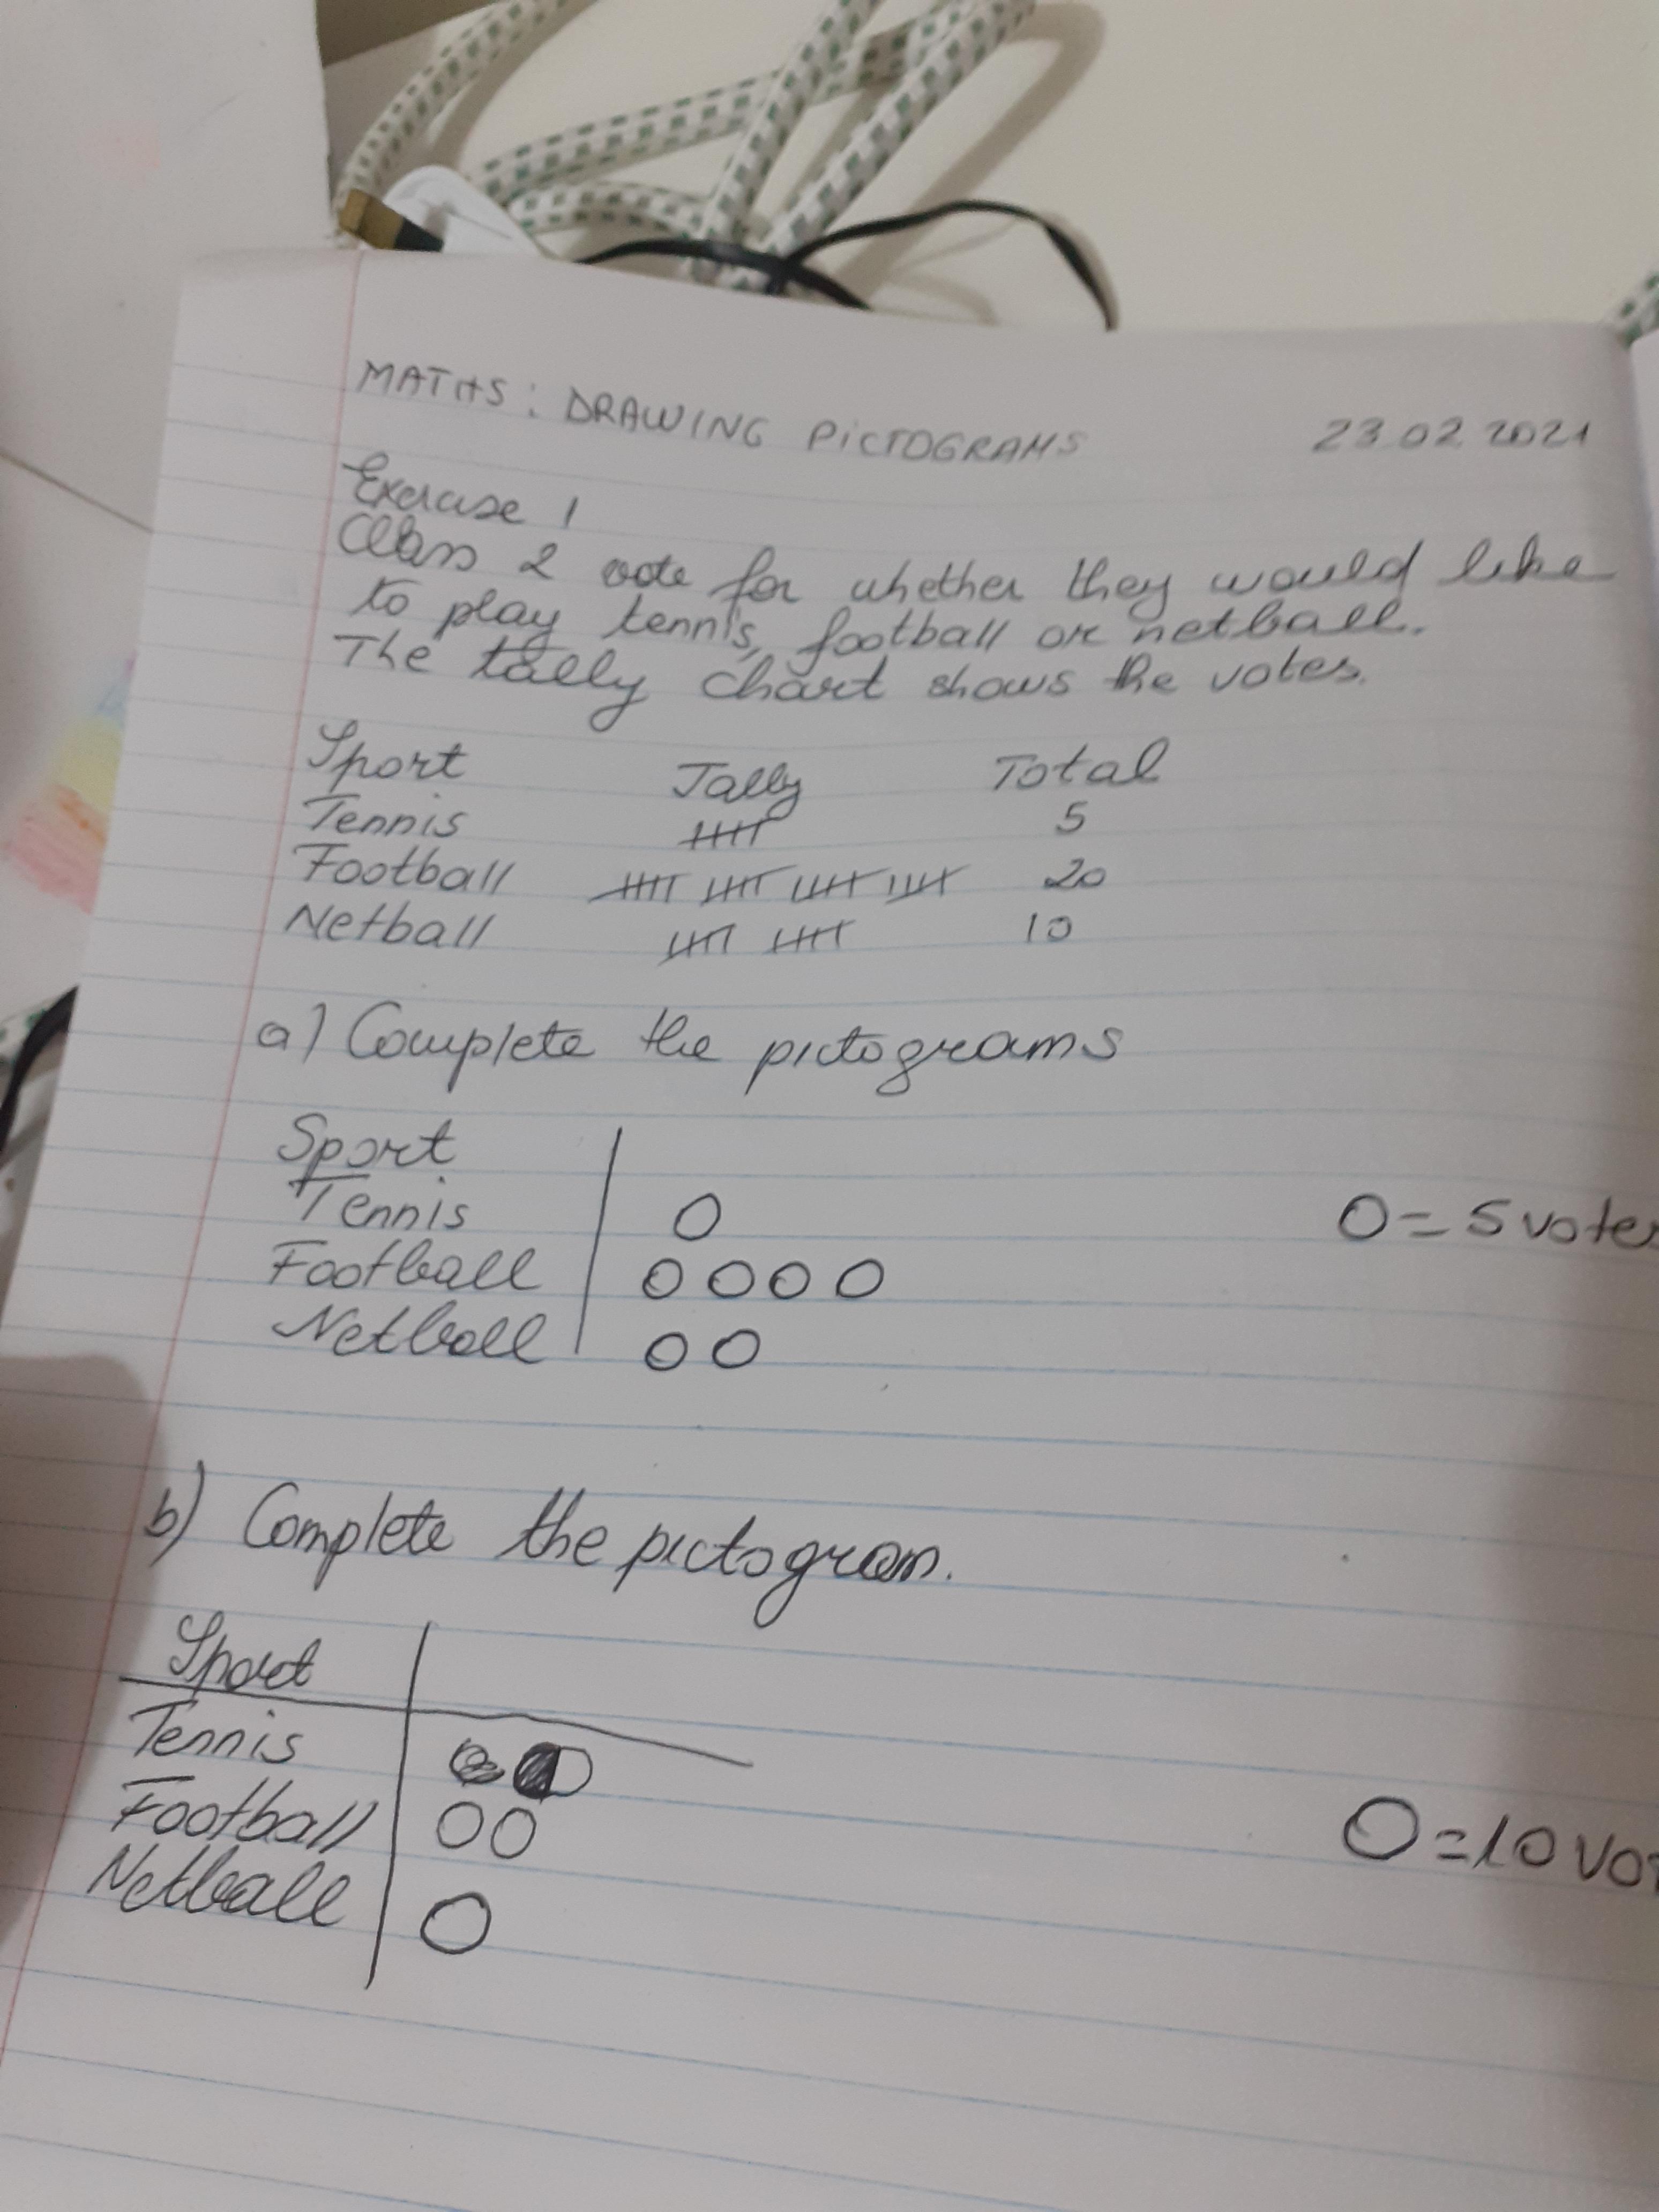 MATHS: DRAWING PICTOGRAMS 23.02.2021
Exercise 1
Class 2 vote for whether they would like
to play tennis, football or netball.
The tally chart shows the votes.
Sport Tally Total
Tennis 5
Football 20
Netball 10
a) Complete the pictograms
Sport
Tennis O O = 5 votes
Football O O O O
Netball O O
b) Complete the pictogram.
Sport
Tennis
Football O O O = 10 vot
Netball O